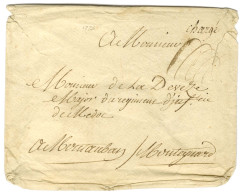 chargé
A Monsieur
Monsieur de La Deveze
Major du regiment d'inf.rie
de Medoc
a Montauban / Montagnard